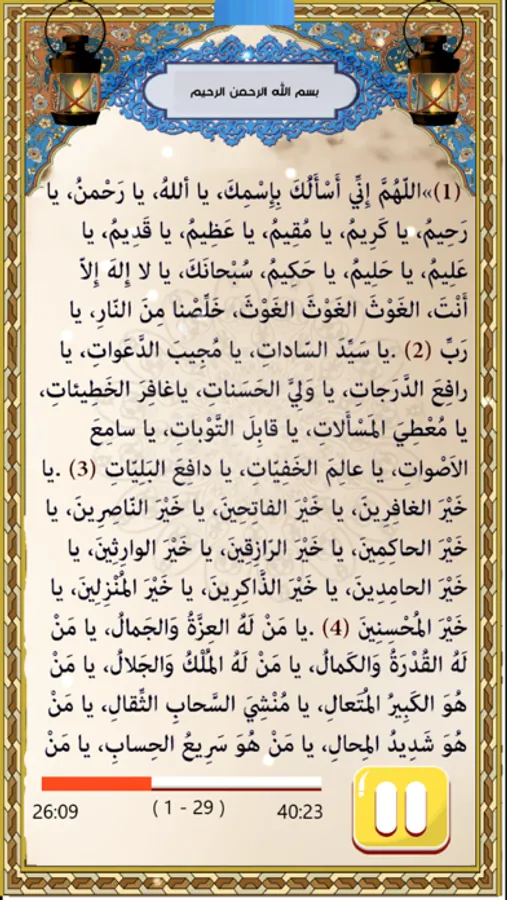 بسم الله الرحمن الرحيم
(1)«اللّهُمَّ إِنِّي أَسْأَلُكَ بِإِسْمِكَ، يا أللهُ، يا رَحْمنُ، يا
رَحِيمُ، يا كَرِيمُ، يا مُقِيمُ، يا عَظِيمُ، يا قَدِيمُ، يا
عَلِيمُ، يا حَلِيمُ، يا حَكِيمُ، سُبْحانَكَ، يا لا إِلهَ إِلاّ
أَنْتَ، الغَوْثَ الغَوْثَ الغَوْثَ، خَلِّصْنا مِنَ النّارِ، يا
رَبِّ (2) .يا سَيِّدَ السّاداتِ، يا مُجِيبَ الدَّعَواتِ، يا
رافِعَ الدَّرَجاتِ، يا وَلِيَّ الحَسَناتِ، ياغافِرَ الخَطِيئاتِ،
يا مُعْطِيَ المَسْأَلاتِ، يا قابِلَ التَّوْباتِ، يا سامِعَ
الاَصْواتِ، يا عالِمَ الخَفِيّاتِ، يا دافِعَ البَلِيّاتِ (3) .يا
خَيْرَ الغافِرِينَ، يا خَيْرَ الفاتِحِينَ، يا خَيْرَ النّاصِرِينَ، يا
خَيْرَ الحاكِمِينَ، يا خَيْرَ الرّازِقِينَ، يا خَيْرَ الوارِثِينَ، يا
خَيْرَ الحامِدِينَ، يا خَيْرَ الذّاكِرِينَ، يا خَيْرَ المُنْزِلِينَ، يا
خَيْرَ المُحْسِنِينَ (4) .يا مَنْ لَهُ العِزَّةُ وَالجَمالُ، يا مَنْ
لَهُ القُدْرَةُ وَالكَمالُ، يا مَنْ لَهُ المُلْكُ وَالجَلالُ، يا مَنْ
هُوَ الكَبِيرُ المُتَعالِ، يا مُنْشِيَ السَّحابِ الثِّقالِ، يا مَنْ
هُوَ شَدِيدُ المِحالِ، يا مَنْ هُوَ سَرِيعُ الحِسابِ، يا مَنْ
26:09 ( 1 - 29 ) 40:23